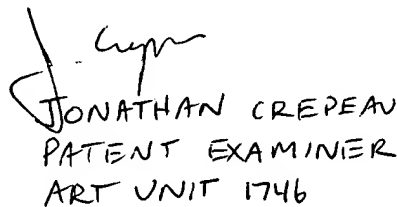 J. Crepeau
JONATHAN CREPEAU
PATENT EXAMINER
ART UNIT 1746